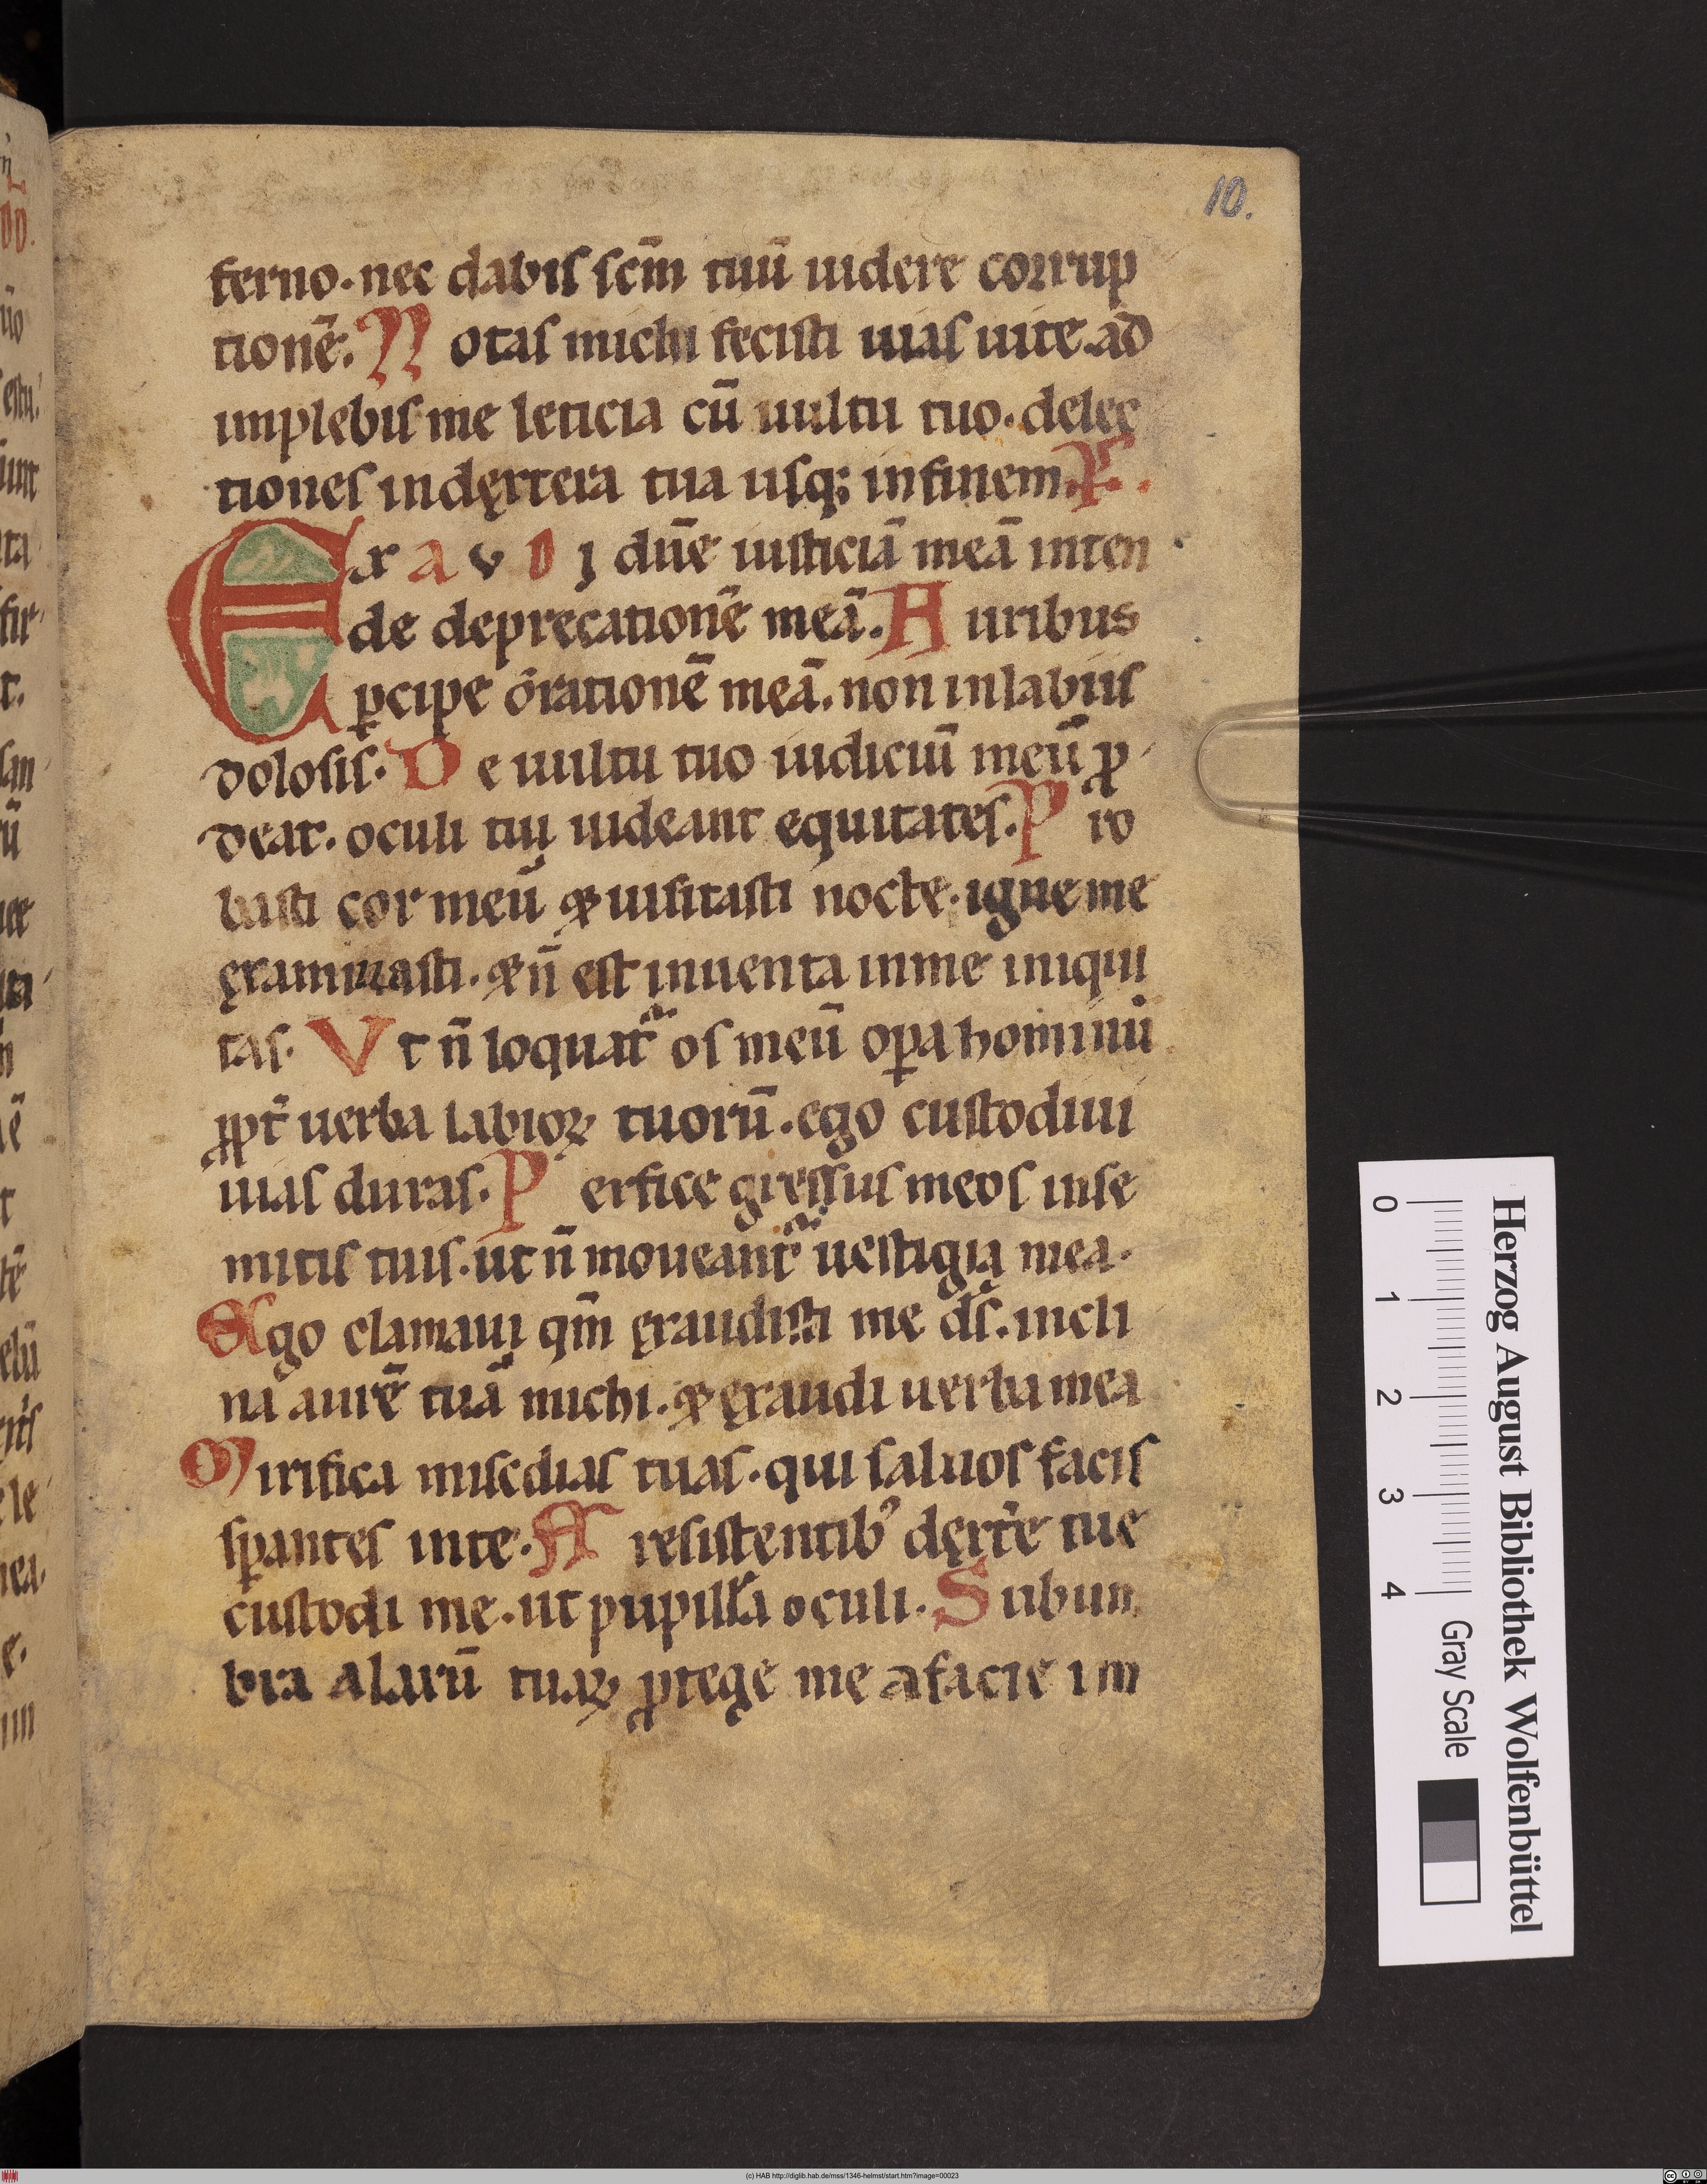 10.
ferno. nec dabis scm̄ tuū uidere corrup
tionē. Notas michi fecisti uias uite. ad
implebis me leticia cū uultu tuo. delec
tiones indęxtera tua usq; infinem. P̄S.
Exaudi dn̄e iusticiā meā inten
de deprecationē meā. Auribus
ꝑcipe orationē meā. non inlabiis
dolosis. De uultu tuo iudiciū meū ꝓ
deat. oculi tui uideant equitates. Pro
basti cor meū & uisitasti nocte. igne me
ęxaminasti. & n̄ est inuenta inme iniqui
tas. Vt n̄ loquat᷑ os meū oꝑa hominū
ꝓpt̄ uerba labioꝝ tuorū. ego custodiui
uias duras. Perfice gressus meos inse
mitis tuis. ut n̄ moueant᷑ uestigia mea.
Ego clamaui qm̄ ęxaudisti me ds̄. incli
na aurē tuā michi. & ęxaudi uerba mea
Mirifica misc̄dias tuas. qui saluos facis
sꝑantes inte. A resistentib᾽ dęxt̄e tuę
custodi me. ut pupilla oculi. Subum
bra alarū tuaꝝ ꝓtege me afacie im
Herzog August Bibliothek Wolfenbüttel
0 1 2 3 4 Gray Scale
(c) HAB http://diglib.hab.de/mss/1346-helmst/start.htm?image=00023